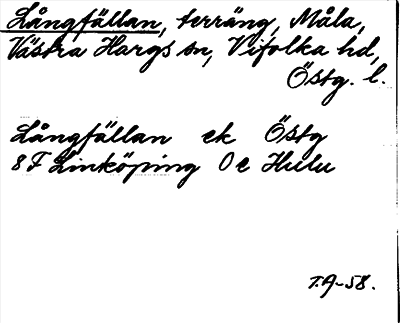 Långfällan, terräng, Måla,
Västra Hargs sn, Vifolka hd,
Östg. l.
Långfällan ek Östg
8F Linköping 0e Hulu
T.A-58.